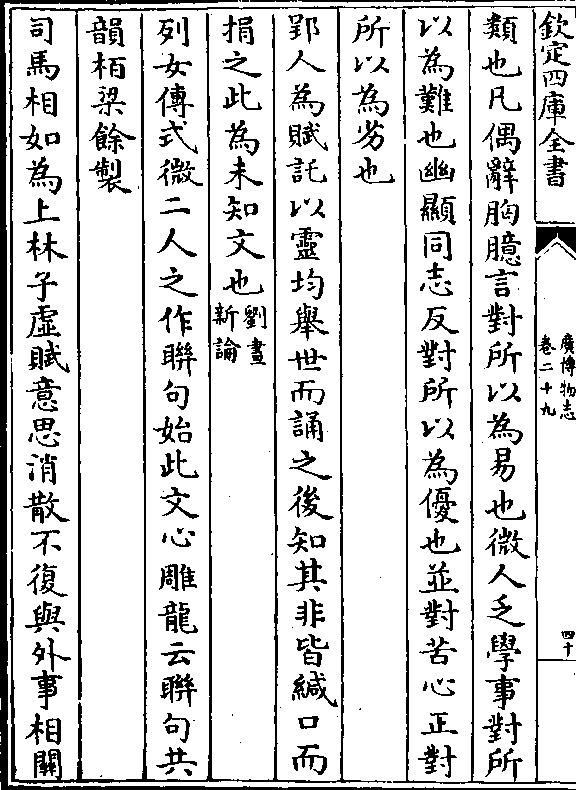 欽定四庫全書
廣博物志
卷二十九
四十
類也凡偶辭胸臆言對所以為易也微人乏學事對所
以為難也幽顯同志反對所以為優也並對苦心正對
所以為劣也
郢人為賦託以靈均舉世而誦之後知其非皆緘口而
捐之此為未知文也劉晝新論
列女傳式微二人之作聯句始此文心雕龍云聯句共
韻栢梁餘製
司馬相如為上林子虛賦意思消散不復與外事相關